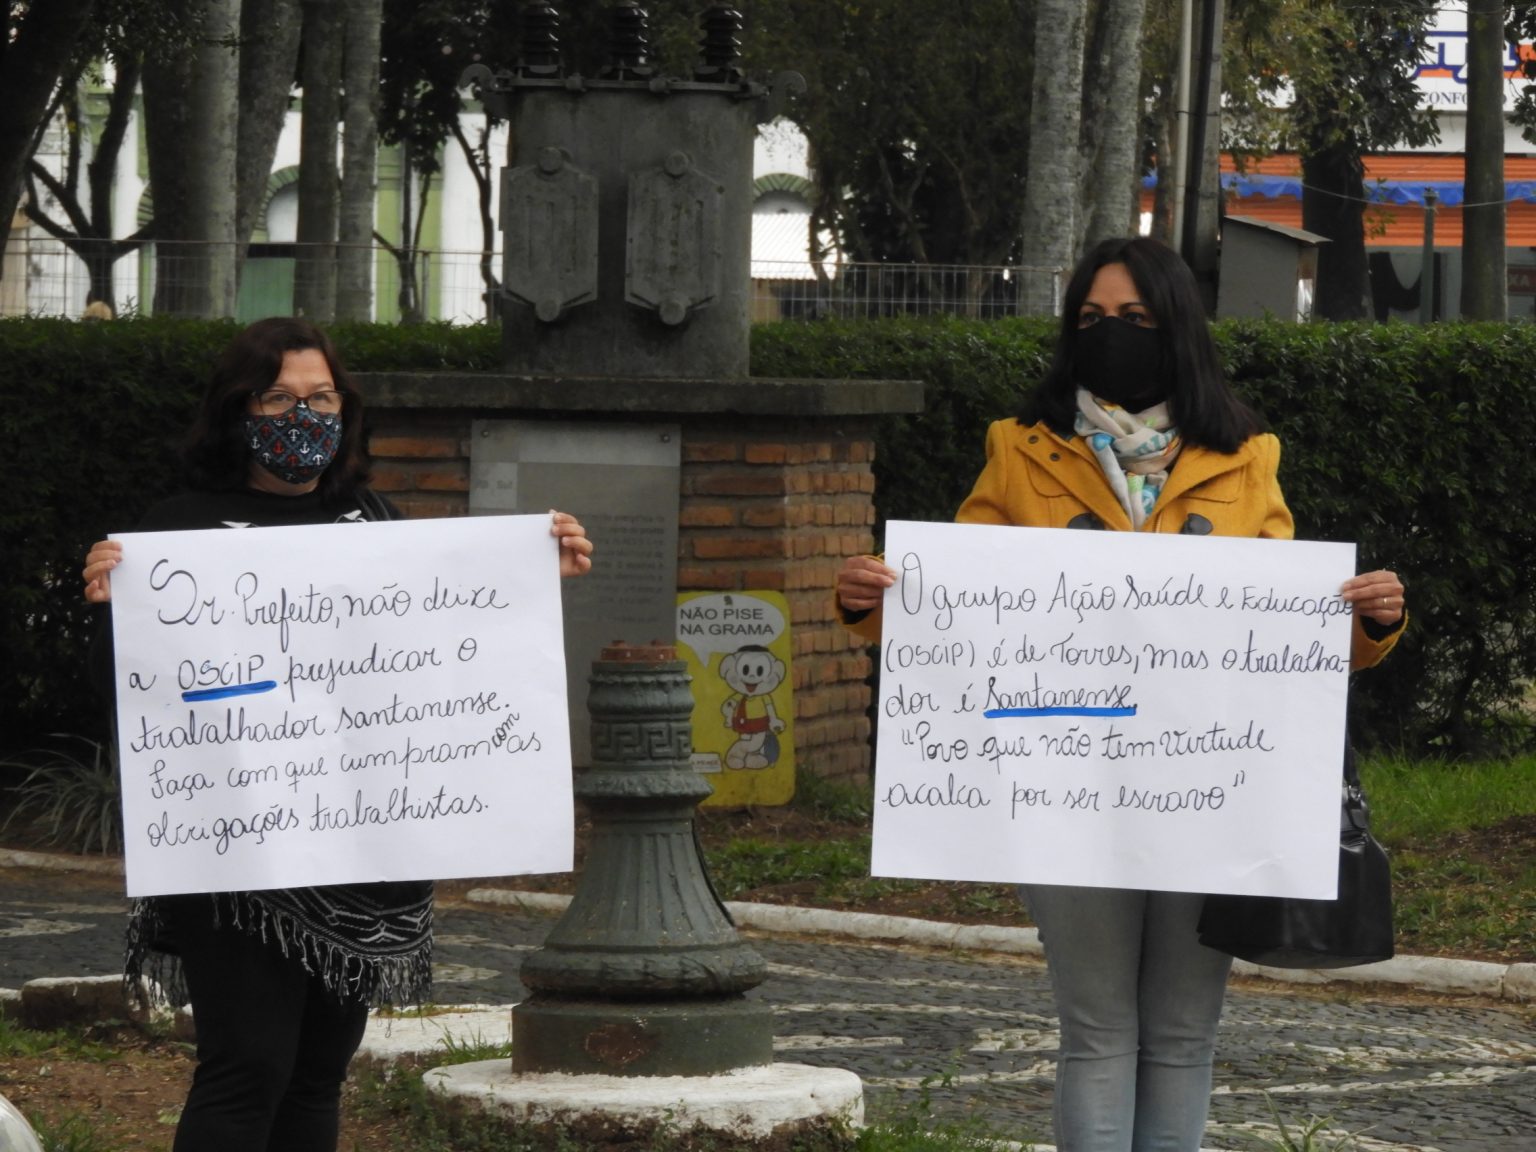 Sr. Prefeito, não deixe
a OSCIP prejudicar o
trabalhador santanense.
Faça com que cumpram com as
obrigações trabalhistas.
O grupo Ação Saúde e Educação
(OSCIP) é de Torres, mas o trabalha-
dor é Santanense.
"Povo que não tem virtude
acaba por ser escravo"
NÃO PISE
NA GRAMA